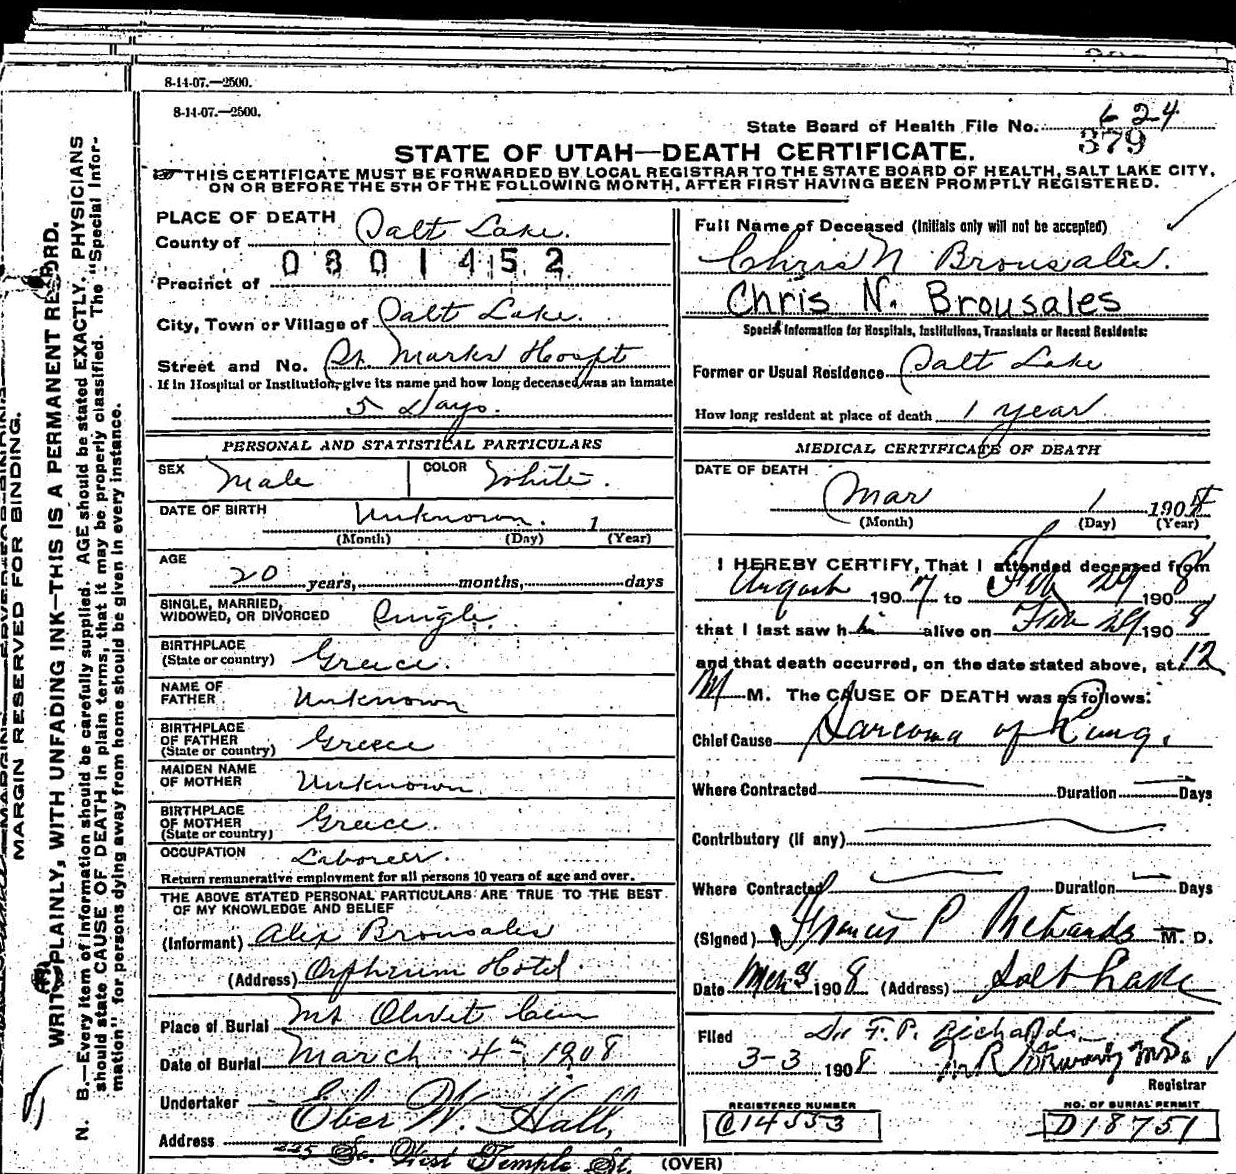 8-14-07.—2500.
8-14-07.—2500.
State Board of Health File No. 624
379
STATE OF UTAH—DEATH CERTIFICATE.
THIS CERTIFICATE MUST BE FORWARDED BY LOCAL REGISTRAR TO THE STATE BOARD OF HEALTH, SALT LAKE CITY,
ON OR BEFORE THE 5TH OF THE FOLLOWING MONTH, AFTER FIRST HAVING BEEN PROMPTLY REGISTERED.
PLACE OF DEATH
County of Salt Lake.
0801452
Precinct of
City, Town or Village of Salt Lake.
Street and No. St. Marks Hospt
If in Hospital or Institution, give its name and how long deceased was an inmate
5 Days.
Full Name of Deceased (Initials only will not be accepted)
Chris N Brousales.
Chris N. Brousales
Special Information for Hospitals, Institutions, Transients or Recent Residents:
Former or Usual Residence Salt Lake
How long resident at place of death 1 year
PERSONAL AND STATISTICAL PARTICULARS
SEX Male COLOR White.
DATE OF BIRTH Unknown. 1
(Month) (Day) (Year)
AGE
20 years, months, days
SINGLE, MARRIED,
WIDOWED, OR DIVORCED Single.
BIRTHPLACE
(State or country) Greece.
NAME OF
FATHER Unknown
BIRTHPLACE
OF FATHER
(State or country) Greece
MAIDEN NAME
OF MOTHER Unknown.
BIRTHPLACE
OF MOTHER
(State or country) Greece.
OCCUPATION Laborer.
Return remunerative employment for all persons 10 years of age and over.
THE ABOVE STATED PERSONAL PARTICULARS ARE TRUE TO THE BEST
OF MY KNOWLEDGE AND BELIEF
(Informant) Alex Brousales
(Address) Orpheum Hotel.
Place of Burial Mt Olivet Cem
Date of Burial March 4th 1908
Undertaker Eber W. Hall,
Address 225 So. West Temple St.
(OVER)
MEDICAL CERTIFICATE OF DEATH
DATE OF DEATH
Mar 1 1908
(Month) (Day) (Year)
I HEREBY CERTIFY, That I attended deceased from
August 1907 to Feb 29 1908
that I last saw him alive on Feb 29 1908
and that death occurred, on the date stated above, at 12
M M. The CAUSE OF DEATH was as follows:
Chief Cause Sarcoma of Lung.
Where Contracted Duration Days
Contributory (if any)
Where Contracted Duration Days
(Signed) Francis P Richards M. D.
Date Mch 3 1908 (Address) Salt Lake
Filed Dr F. P. Richards
3-3 1908
Registrar
REGISTERED NUMBER
C14553
NO. OF BURIAL PERMIT
D18751
MARGIN RESERVED FOR BINDING.
WRITE PLAINLY, WITH UNFADING INK—THIS IS A PERMANENT RECORD.
N. B.—Every item of information should be carefully supplied. AGE should be stated EXACTLY. PHYSICIANS
should state CAUSE OF DEATH in plain terms, that it may be properly classified. The "Special Infor-
mation" for persons dying away from home should be given in every instance.